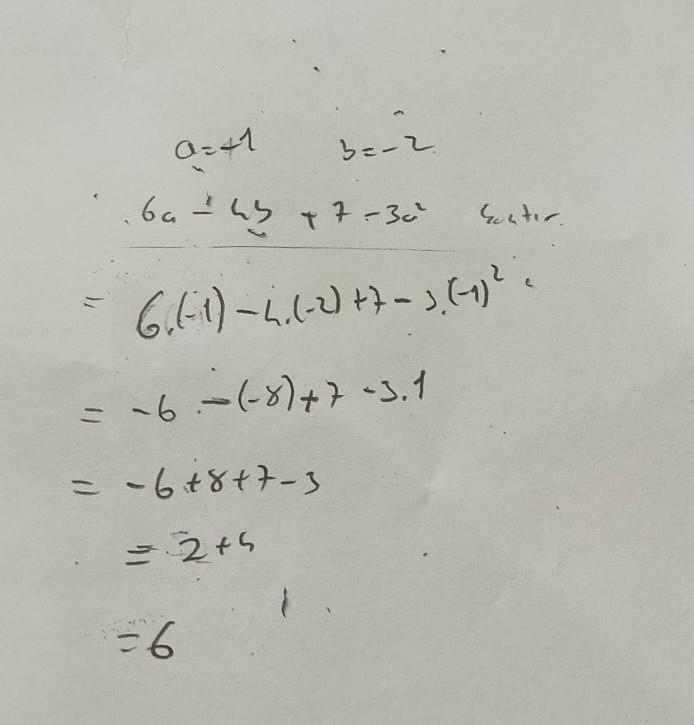 a=+1 b=-2
6a - 4b + 7 - 3a²
= 6.(-1) - 4.(-2) + 7 - 3.(-1)²
= -6 - (-8) + 7 - 3.1
= -6 + 8 + 7 - 3
= 2 + 4
= 6